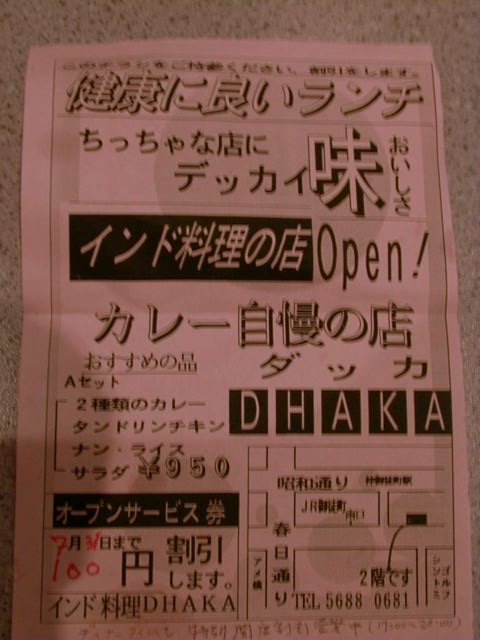 このチラシをご持参ください、割引をします。
健康に良いランチ
ちっちゃな店に
デッカイ味
おいしさ
インド料理の店 Open!
カレー自慢の店
おすすめの品
ダッカ
DHAKA
Aセット
2種類のカレー
タンドリンチキン
ナン・ライス
サラダ ¥950
オープンサービス券
7月31日まで
100円割引します。
インド料理DHAKA
昭和通り
仲御徒町駅
JR御徒町
南口
春日通り
アメ横
2階です
TEL 5688 0681